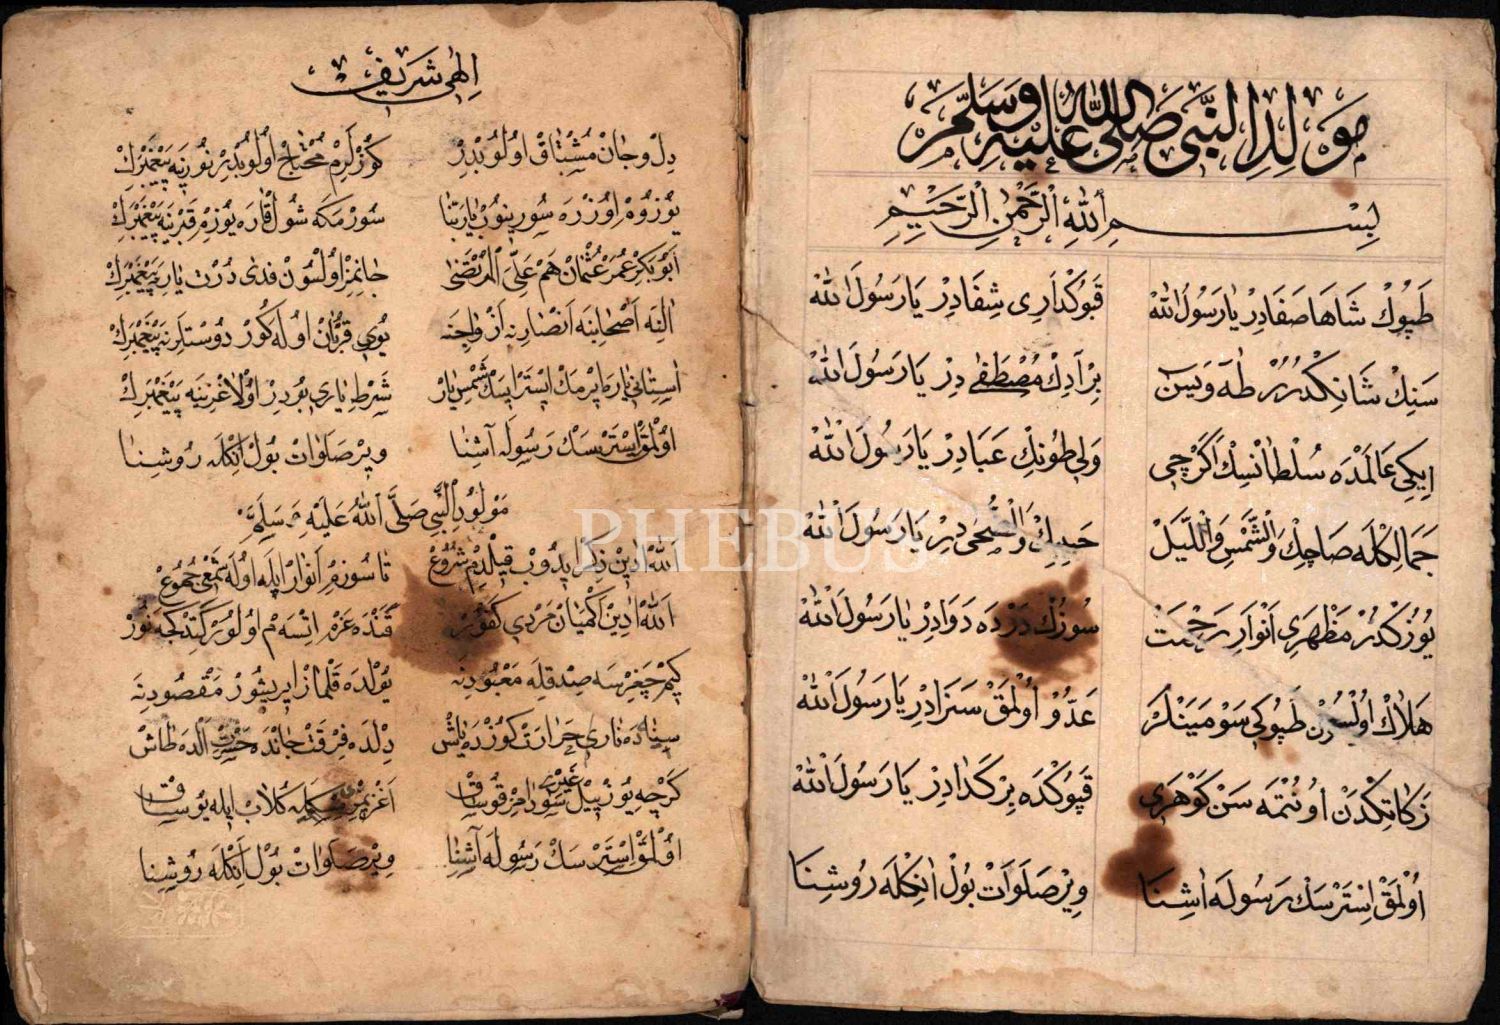 مَوْلِدِ النَّبِی صَلَّی اللّٰهُ عَلَیْهِ وَسَلَّمَ
بِسْمِ اللّٰهِ الرَّحْمٰنِ الرَّحِیْمِ
طَپُوكْ شَاهَا صَفَادِرْ یَارَسُولَ اللّٰهْ قَپُوكْدَارِی شِفَادِرْ یَارَسُولَ اللّٰهْ
سَنِكْ شَانِكْدُرُرْ طٰهَ وَیٰسٓ بِرْ اَدِكْ مُصْطَفٰی دِرْ یَارَسُولَ اللّٰهْ
اِیكِی عَالَمْدَه سُلْطَانْسِكْ اَكَرْچِی وَلِی طُونِكْ عَبَادِرْ یَارَسُولَ اللّٰهْ
جَمَالِكْلَه صَاچِكْ وَالشَّمْسِ وَاللَّیْلْ وَالضُّحٰی دِرْ یَارَسُولَ اللّٰهْ
یُوزُكْدُرْ مَظْهَرِی اَنْوَارِ رَحْمَتْ سُوزُكْ دَرْدَه دَوَادِرْ یَارَسُولَ اللّٰهْ
هَلَاكْ اُولْسُونْ طَپُوكِی سَوْمَیَنْلَرْ عَدُوْ اُولْمَقْ سَزَادِرْ یَارَسُولَ اللّٰهْ
زَكَاتِكْدَنْ اُونُتْمَه سَنْ كَوْهَرِی قَپُوكْدَه بِرْ كَدَادِرْ یَارَسُولَ اللّٰهْ
اُولْمَقْ اِسْتَرْسَكْ رَسُولَه اٰشِنَا وِیرْ صَلَوَاتْ بُولْ اَنِكْلَه رُوشِنَا
اِلٰهِی شَرِیفْ
دِلْ وجَانْ مُشْتَاقْ اُولُوبْدِرْ كُوزْلَرِمْ مُحْتَاجْ اُولُوبْدِرْ نُورِنَه پَیْغَمْبَرِكْ
یُوزُومْ اُوزْرَه سُورِینُوبْ یَارَبَّنَا سُورْ مَكَه شُولْ قَارَه یُوزِمْ قَبْرِنَه پَیْغَمْبَرِكْ
اَبُوبَكِرْ عُمَرْ عُثْمَانْ هَمْ عَلِیَّ الْمُرْتَضٰی جَانِمِزْ اُولْسُونْ فِدٰی دُرْتْ یَارِ پَیْغَمْبَرِكْ
اٰلِنَه اَصْحَابِنَه اَنْصَارِنَه اَزْوَاجِنَه قُرْبَانْ اُولَه كُورْ دُوسْتْلَرِنَه پَیْغَمْبَرِكْ
شَمْسْ یَارْ شَرْطِ یَارِی بُودِرْ اُوْلَا پَیْغَمْبَرِكْ
اُولْمَقْ اِسْتَرْسَكْ رَسُولَه آشِنَا وِیرْ صَلَوَاتْ بُولْ اَنِكْلَه رُوشِنَا
مَوْلُودُ النَّبِی صَلَّی اللّٰهُ عَلَیْهِ وَسَلَّمْ
اللّٰهْ اٰدِینْ ذِكْرْ اِیدُوبْ قِیلْدِمْ شُرُوعْ تَا سُوزِمْ اَنْوَارْ اِیلَه اُولَه
اَللّٰهْ اٰدِینْ قَنْدَه عَزْمْ اِتْسَه اُولُورْ
كِیمْ صِدْقِلَه مَعْبُودِنَه یُولْدَه قَلْمَازْ اِیرِیشُورْ مَقْصُودِنَه
سِینَه دَه نَارِی حَرَارَتْ كُوزْدَه یَاشْ دِلْدَه فِرْقَتْ جَانْدَه حَسْرَتْ اَلْدَه طَاشْ
كَرْچَه یُوزْ بِیكْ كُلَابْ اِیلَه یُوسَاقْ
اُولْمَقْ اِسْتَرْسَكْ رَسُولَه آشِنَا وِیرْ صَلَوَاتْ بُولْ اَنِكْلَه رُوشِنَا
PHEBUS